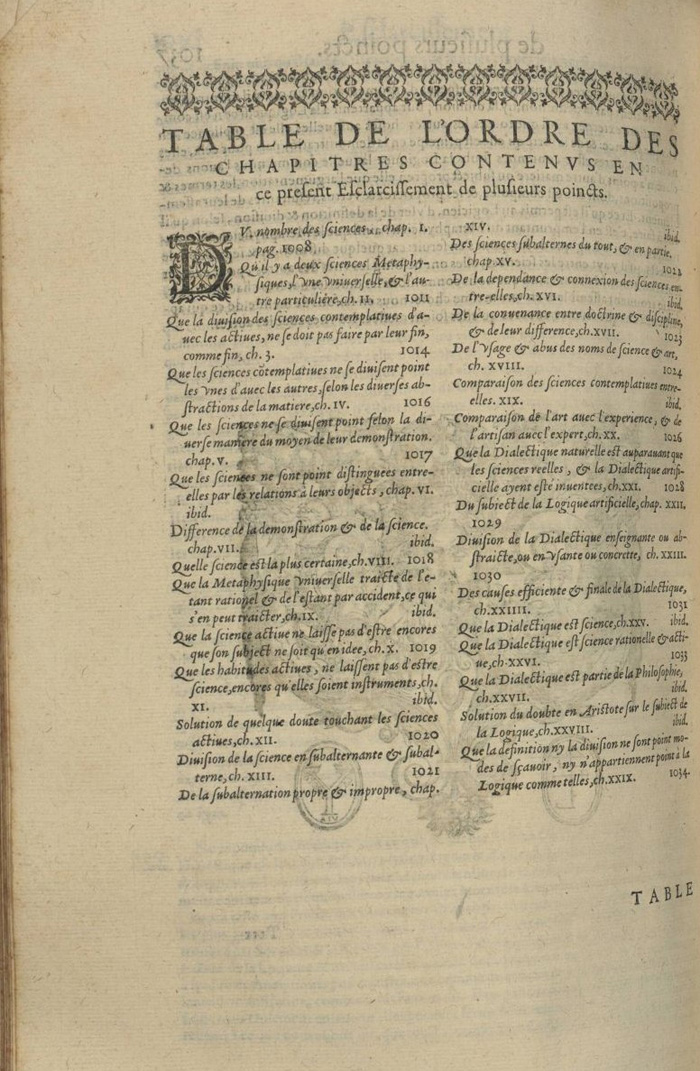 TABLE DE L'ORDRE DES
CHAPITRES CONTENVS EN
ce present Esclarcissement de plusieurs poincts.
DV nombre des sciences, chap. 1.
pag. 1008
Qu'il y a deux sciences Metaphy-
siques, l'vne vniuerselle, & l'au-
tre particuliere, ch. 11. 1011
Que la diuision des sciences contemplatiues d'a-
uec les actiues, ne se doit pas faire par leur fin,
comme fin, ch. 3. 1014
Que les sciences cōtemplatiues ne se diuisent point
les vnes d'auec les autres, selon les diuerses ab-
stractions de la matiere, ch. IV. 1016
Que les sciences ne se diuisent point selon la di-
uerse maniere du moyen de leur demonstration.
chap. V. 1017
Que les sciences ne sont point distinguees entre-
elles par les relations à leurs obiects, chap. VI.
ibid.
Difference de la demonstration & de la science.
chap. VII. ibid.
Quelle science est la plus certaine, ch. VIII. 1018
Que la Metaphysique vniuerselle traicte de l'e-
tant rationel & de l'estant par accident, ce qui
s'en peut traicter, ch. IX. ibid.
Que la science actiue ne laisse pas d'estre encores
que son subject ne soit qu'en idee, ch. X. 1019
Que les habitudes actiues, ne laissent pas d'estre
science, encores qu'elles soient instruments, ch.
XI. ibid.
Solution de quelque doute touchant les sciences
actiues, ch. XII. 1020
Diuision de la science en subalternante & subal-
terne, ch. XIII. 1021
De la subalternation propre & impropre, chap.
XIV. ibid.
Des sciences subalternes du tout, & en partie.
chap. XV. 1022
De la dependance & connexion des sciences en-
tre-elles, ch. XVI. ibid.
De la conuenance entre doctrine & discipline,
& de leur difference, ch. XVII. 1023
De l'vsage & abus des noms de science & art,
ch. XVIII. 1024
Comparaison des sciences contemplatiues entre-
elles. XIX. ibid.
Comparaison de l'art auec l'experience, & de
l'artisan auec l'expert, ch. XX. 1026
Que la Dialectique naturelle est auparauant que
les sciences reelles, & la Dialectique artifi-
cielle ayent esté inuentees, ch. XXI. 1028
Du subiect de la Logique artificielle, chap. XXII.
1029
Diuision de la Dialectique enseignante ou ab-
straicte, ou en vsante ou concrette, ch. XXIII.
1030
Des causes efficiente & finale de la Dialectique,
ch. XXIIII. 1031
Que la Dialectique est science, ch. XXV. ibid.
Que la Dialectique est science rationelle & acti-
ue, ch. XXVI. 1033
Que la Dialectique est partie de la Philosophie,
ch. XXVII. ibid.
Solution du doubte en Aristote sur le subiect de
la Logique, ch. XXVIII. ibid.
Que la definition ny la diuision ne sont point mo-
des de sçauoir, ny n'appartiennent point à la
Logique comme telles, ch. XXIX. 1034.
TABLE